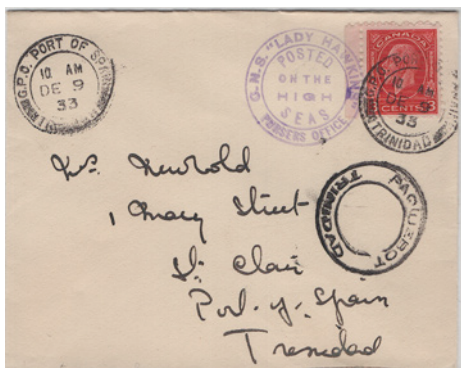 G.P.O. PORT OF SPAIN
10 AM
DE 9
33
"LADY HAWKINS"
POSTED
ON THE
HIGH
SEAS
PURSERS OFFICE
CANADA
3
CENTS
G.P.O. PORT
10 AM
DE 9
33
TRINIDAD
PAQUEBOT
TRINIDAD
Newbold
1 Mary Street
St. Clair
Port-of-Spain
Trinidad